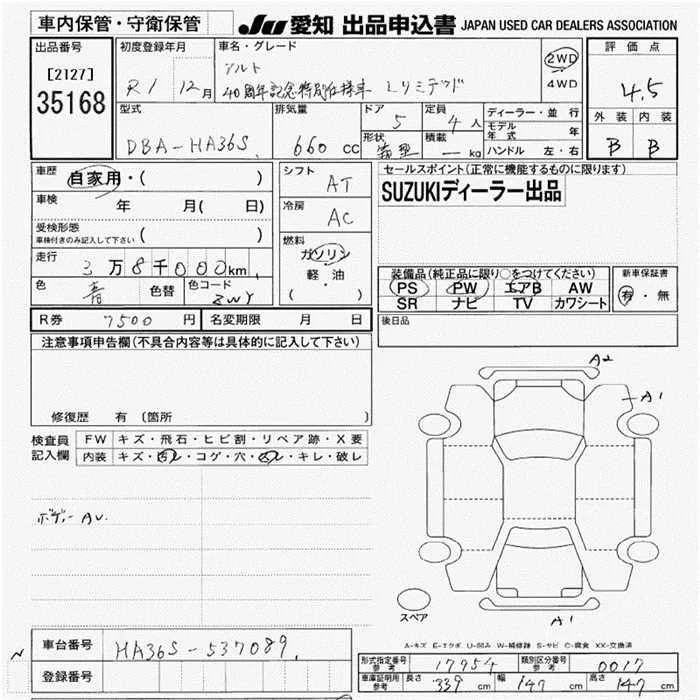 車内保管・守衛保管
JU 愛知 出品申込書 JAPAN USED CAR DEALERS ASSOCIATION
出品番号
[2127]
35168
初度登録年月
R1 12月
車名・グレード
アルト
40周年記念特別仕様車 Lリミテッド
2WD
4WD
評価点
4.5
外装 内装
B B
型式
DBA-HA36S
排気量
660 cc
ドア
5
形状
箱型
定員
4人
積載
― kg
ディーラー・並行
モデル年式 年
ハンドル 左・右
車歴
自家用・( )
車検
年 月( 日)
受検形態
車検付きのみ記入して下さい ( )
走行
3万8千000km
色
青
色替
色コード
ZWY
シフト
AT
冷房
AC
燃料
ガソリン
軽・油
( )
セールスポイント(正常に機能するものに限ります)
SUZUKIディーラー出品
装備品(純正品に限り○をつけてください)
PS PW エアB AW
SR ナビ TV カワシート
新車保証書
有・無
R券 7500円
名変期限 月 日
後日品
注意事項申告欄(不具合内容等は具体的に記入して下さい)
修復歴 有 〔箇所 〕
検査員
記入欄
FW キズ・飛石・ヒビ割・リペア跡・X要
内装 キズ・汚レ・コゲ・穴・スレ・キレ・破レ
ボデー AU.
A2
A1
スペア
A1
A-キズ E-エクボ U-凹み W-補修跡 S-サビ C-腐食 XX-交換済
車台番号 HA36S-537089
登録番号
N
型式指定番号
参考
17954
類別区分番号
参考
0017
車庫証明用
参考
長さ 339 cm 幅 147 cm 高さ 147 cm